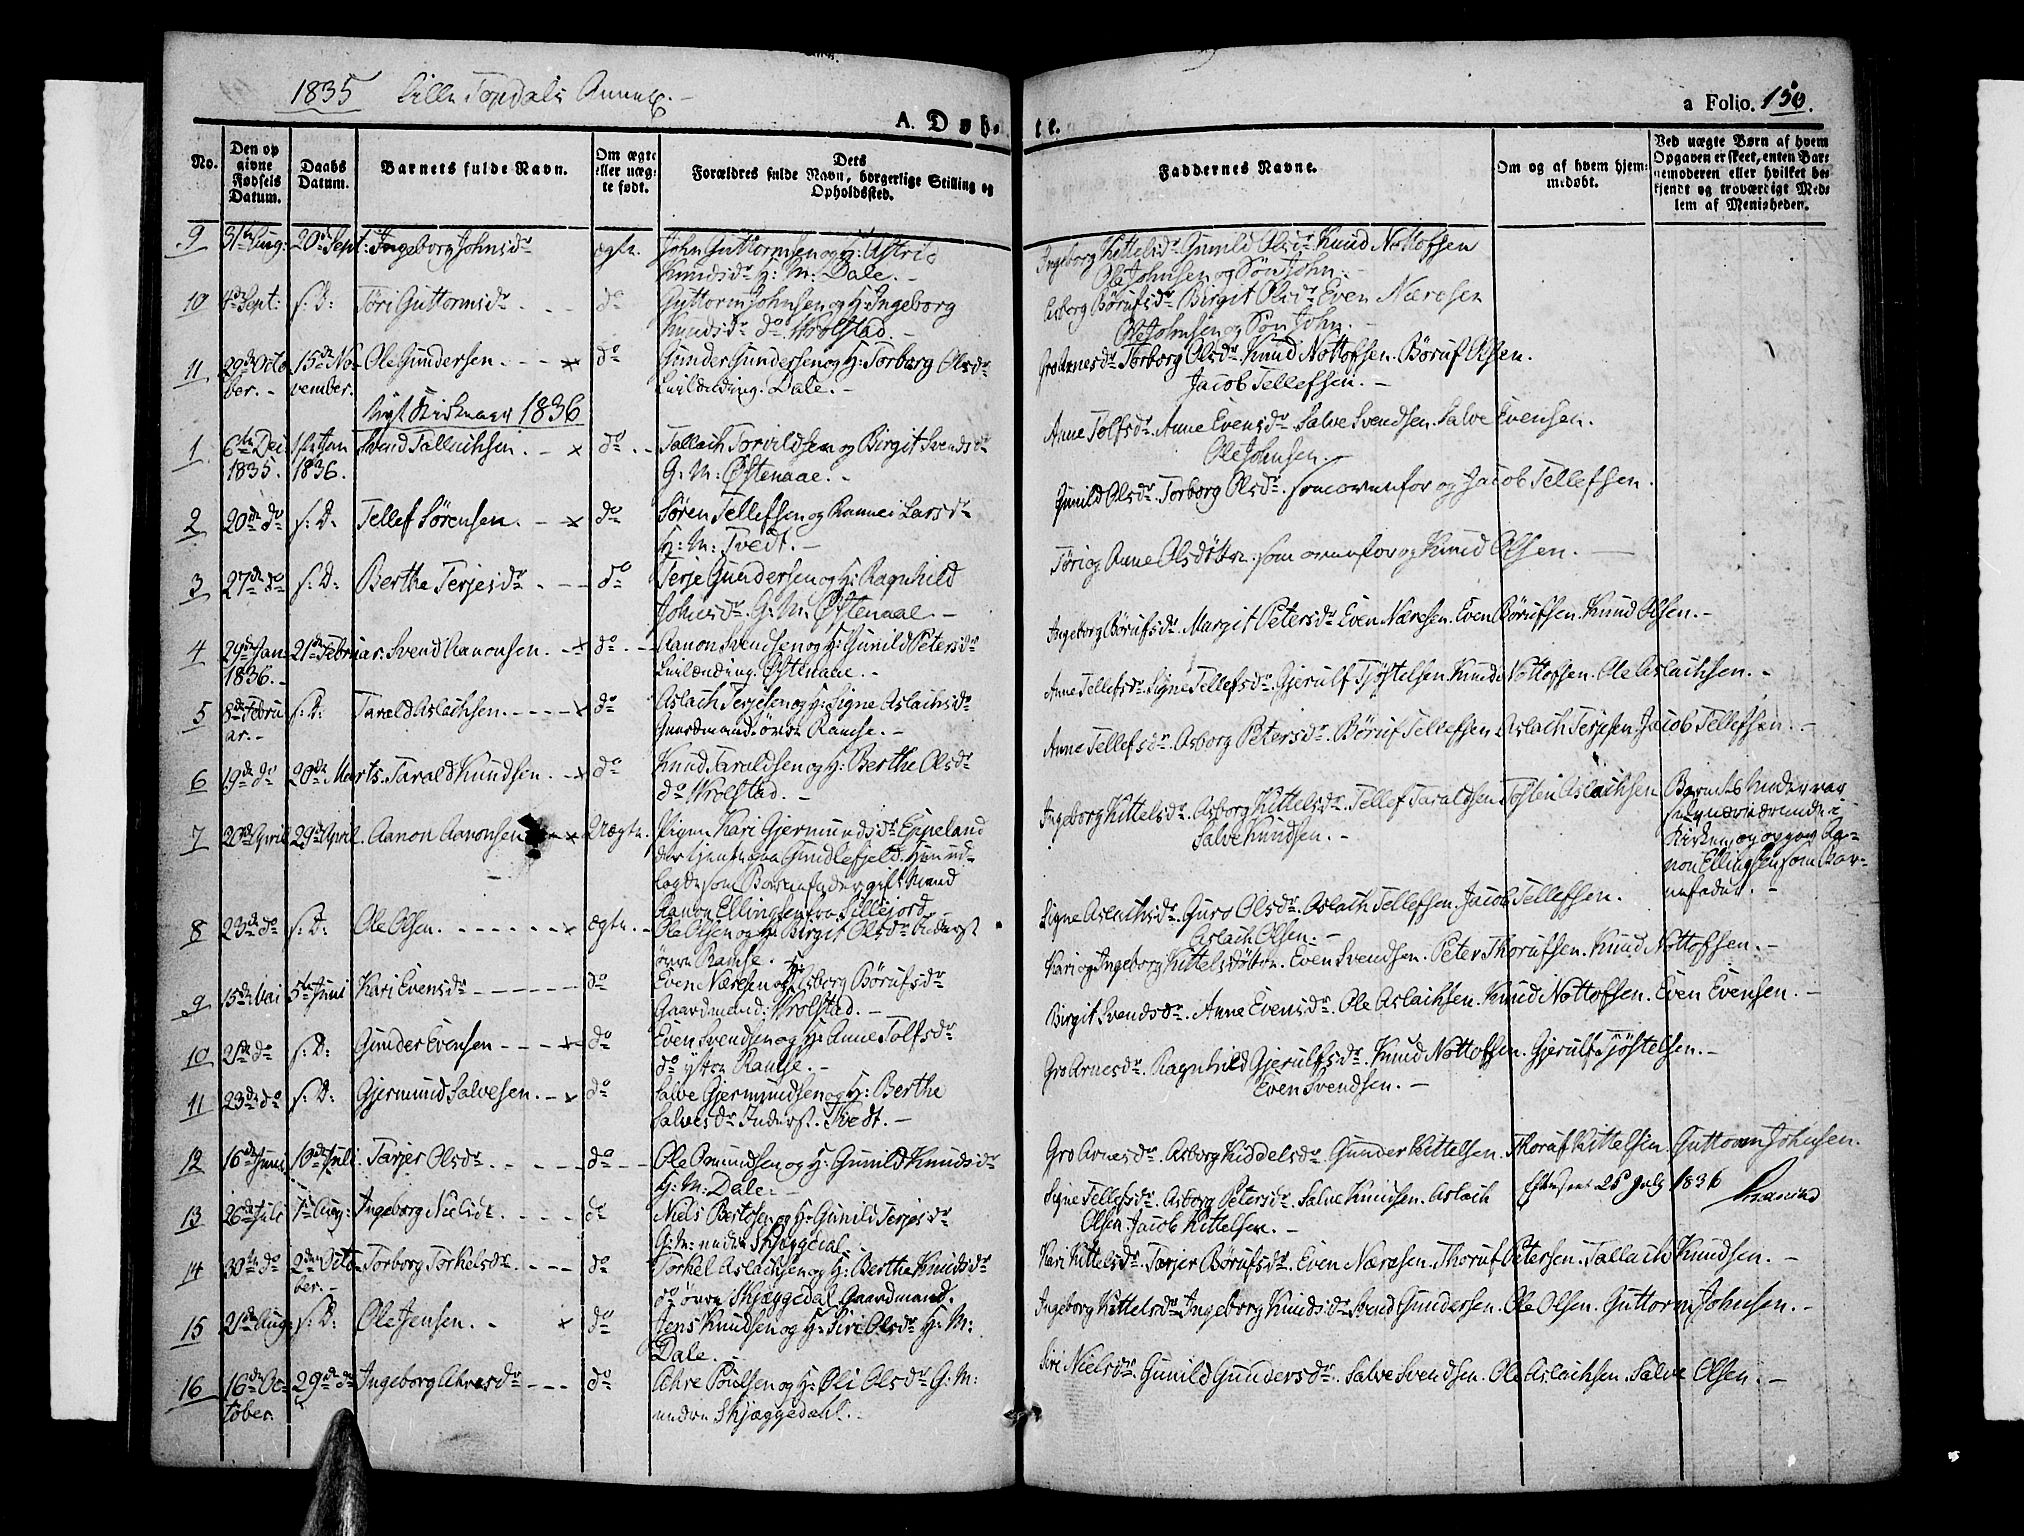 1835 Lille Topdals Annex.
A. Døb-
te.
a Folio. 150.
No.
Den op
givne
Fødsels
Datum.
Daabs
Datum.
Barnets fulde Navn.
Om ægte
eller uæg-
te født.
Dets
Forældres fulde Navn, borgerlige Stilling og
Opholdssted.
Faddernes Navne.
Om og af hvem hjem-
medøbt.
Ved uægte Børn af hvem
Opgaven er skeet, enten Bar-
nemoderen eller hvilket be-
kjendt og troværdigt Med-
lem af Menigheden.
9 31te Aug: 20de Sept: Ingeborg Johnsdr ægte. John Guttormsen og H: Astri
Knudsdr H: M: Dale. -
Ingeborg Kittelsdr Gunild Olsdr Knud Nottofsen
Ole Johnsen og Søn John. -
10 4de Sept: s: D: Töri Guttormsdr do Guttorm Johnsen og H: Ingeborg
Knudsdr do Wrolstad. -
Asborg Börufsdr Birgit Olsdr Even Næresen
Ole Johnsen og Søn John. -
11 29de Octo 15de No- Ole Gundersen. - - x do Gunder Gundersen og H: Torborg Olsdr
ber. - vember. Dale. -
Gro Arnesdr Torborg Olsdr. Knud Nottofsen. Böruf Olsen.
Jacob Tellefsen. -
Nyt Kirkeaar 1836
1 6te Dec 1ste Jan Svend Tallachsen. - x do - Tallach Torvildsen og Birgit Svendsdr
1835. 1836. G: M: Östenaae. -
Anne Tolfsdr. Anne Evensdr. Salve Svendsen. Salve Evensen.
Ole Johnsen. -
2 20de do s: D: Tellef Sörensen. - x do Sören Tellefsen og Larsdr
H: M: Tvedt. -
Gunild Olsdr. Torborg Olsdr. som ovenfor og Jacob Tellefsen.
3 27de do s: D: Berthe Terjesdr - - do Terje Gundersen og H: Ragnhild
Johnsdr. G: M: Östenaae. -
Töri og Anne Olsdötre. som ovenfor og Knud Olsen. -
4 29de Jan: 21de Februar. Svend Aanonsen. - x do - Aanon Svendsen og H: Gunild Petersdr
1836. - Östenaae. -
Ingeborg Börufsdr. Margit Petersdr Even Næresen. Even Börufsen. Knud Olsen. -
5 8de Febru s: D: Tarald Aslachsen. - - - x do Aslach Terjesen og H: Signe Aslachsdr
ar. - Gaardmand övre Ramse. -
Anne Tellefsdr. Signe Tellefsdr. Gjerulf Tjöstelsen. Knud Nottofsen. Ole Aslachsen. -
6 19de do 20de Marts. Tarald Knudsen. - x do Knud Taraldsen og H: Berthe Olsdr
do Wrolstad. -
Anne Tellefsdr. Asborg Petersdr. Böruf Tellefsen Aslach Terjesen. Jacob Tellefsen. -
7 20de April 29de April. Aanon Aanonsen x Uægte. Pigen Kari Gjermundsdr Eppeland
der tjente paa Gundlefjeld. Hun ud-
lagde som Barnefader gift Mand
Aanon Ellingsen fra Sillejord
Ingeborg Kittelsdr. Asborg Kittelsdr. Tellef Taraldsen Tosten Aslachsen
Salve Knudsen. -
Barnets Moder var
selv nærværende i
Kirken og opgav Aa-
non Ellingsen som Bar-
nefader. -
8 23de do s: D: Ole Olsen. - - - - x ægte. - Ole Olsen og H: Birgit Olsdr Inderst
övre Ramse.
Signe Aslachsdr. Guro Olsdr. Aslach Tellefsen. Jacob Tellefsen.
Aslach Olsen. -
9 15de Mai 5te Juni Kari Evensdr - - - do Even Næresen og H: Asborg Börufsdr
Gaardmand: Wrolstad. -
Kari og Ingeborg Kittelsdötre. Even Svendsen. Peter Thorufsen. Knud Nottofsen. -
10 21de do s: D: Gunder Evensen - - - x do Even Svendsen og H: Anne Tolfsdr
do ytre Ramse. -
Birgit Svendsdr. Anne Evensdr. Ole Aslachsen. Knud Nottofsen. Even Evensen. -
11 23de do s: D: Gjermund Salvesen. - x do Salve Gjermundsen og H: Berthe
Salvesdr Inderst. Tvedt. -
Gro Arnesdr. Ragnhild Gjerulfsdr. Knud Nottofsen. Gjerulf Tjöstelsen. -
Even Svendsen. -
12 16de Juni 10de Juli. Tarjer Olsdr. - - - do - Ole Omundsen og H: Gunild Knudsdr
H: M: Dale. -
Gro Arnesdr. Asborg Kiddelsdr. Gunder Kittelsen. Thoruf Kittelsen. Guttorm Johnsen.
25 July 1836
13 26de Juli 1ste Aug: Ingeborg Nielsdr. - - - do Niels Bertosen og H: Gunild Terjesdr
G: M: nedre Skjæggedal
Signe Tellefsdr. Asborg Petersdr. Salve Knudsen. Aslach
Olsen Jacob Kittelsen. -
14 30te do 2den Octo- Torborg Torkelsdr. - - do Torkel Aslachsen og H: Berthe Knudsdr
ber. - do övre Skjæggedal Gaardmand.
Kari Kittelsdr. Tarjer Börufsdr. Even Næresen. Thoruf Petersen. Tallach Knudsen. -
15 21de Aug: s: D: Ole Jensen. - x do Jens Knudsen og H: Siri Olsdr H: M:
Dale. -
Ingeborg Kittelsdr. Ingeborg Knudsdr Svend Gundersen. Ole Olsen. Guttorm Johnsen. -
16 16de Oc- 29de do Ingeborg Ahresdr - - - do Ahre Poulsen og H: Oli Olsdr G: M:
tober. nedre Skjæggedahl. -
Siri Nielsdr. Gunild Gundersdr. Salve Svendsen. Ole Aslachsen. Salve Olsen. -